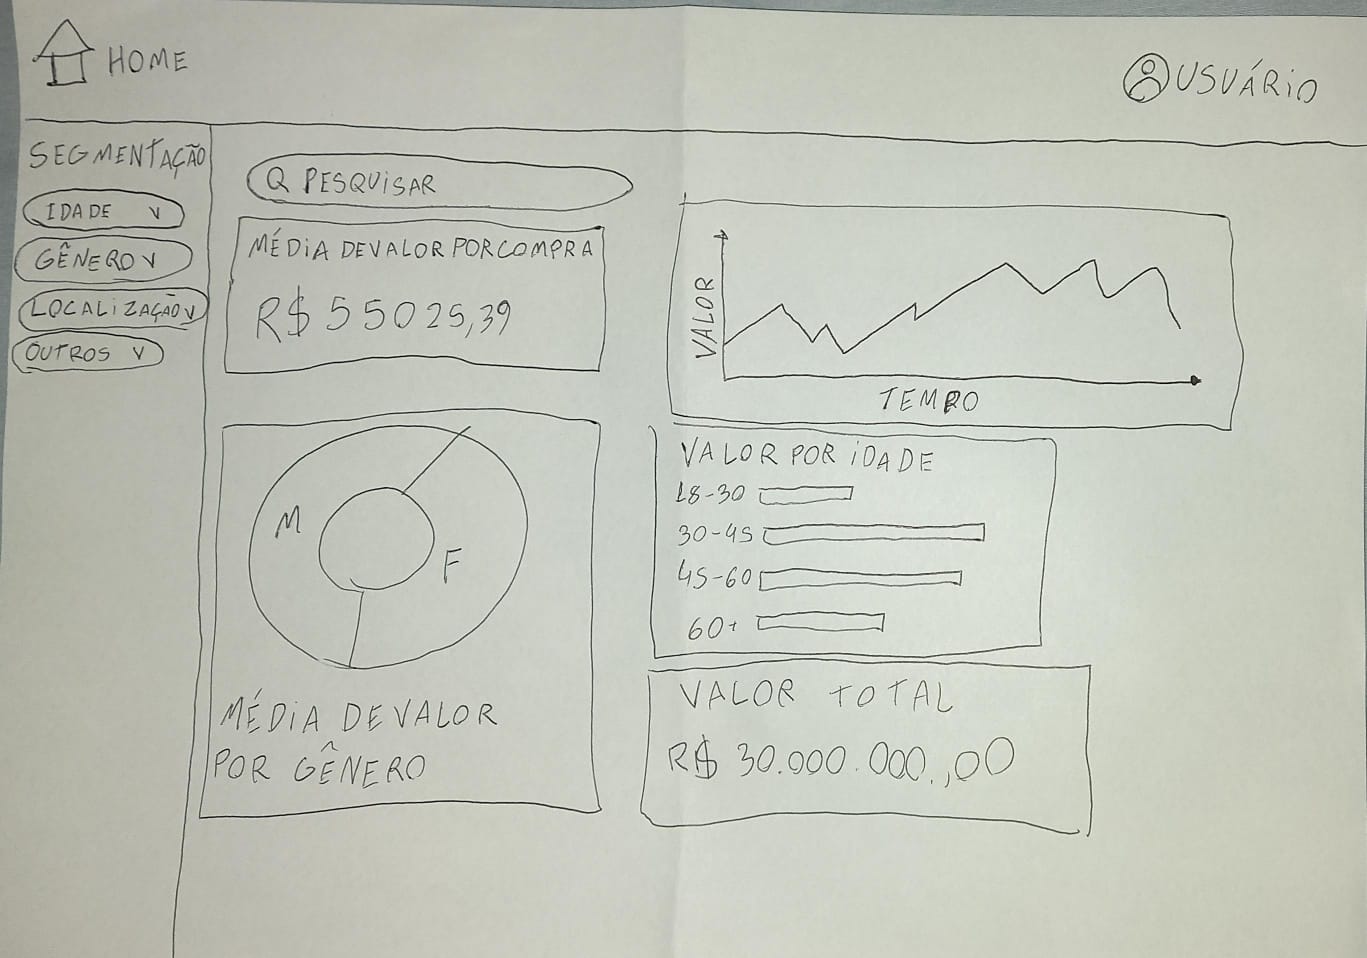 HOME
USUÁRIO
SEGMENTAÇÃO
IDADE V
GÊNERO V
LOCALIZAÇÃO V
OUTROS V
PESQUISAR
MÉDIA DE VALOR POR COMPRA
R$ 55025,39
VALOR
TEMPO
M
F
MÉDIA DE VALOR
POR GÊNERO
VALOR POR IDADE
18-30
30-45
45-60
60+
VALOR TOTAL
R$ 30.000.000.,00